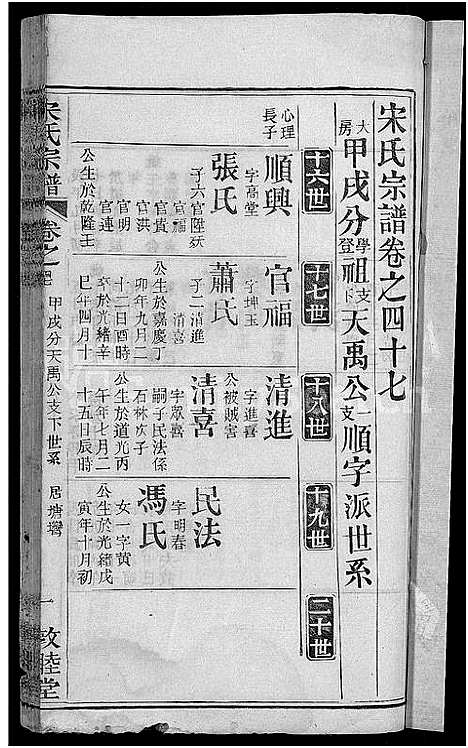 宋氏宗譜卷之四十七
大房甲戌分學登祖支下天禹公二支順字派世系
十六世
十七世
十八世
十九世
二十世
心理長子
順興
字高堂
張氏
子六官陞
官福
官貴
官洪
官明
官連
公生於乾隆壬
官福
字坤玉
蕭氏
子二清進
清喜
公生於嘉慶丁
卯年九月二
十二日酉時
卒於光緒辛
巳年四月十
清進
字進喜
公被賊害
清喜
字眾喜
嗣子民法係
石林次子
公生於道光丙
午年七月二
十五日辰時
民法
字明春
馮氏
女一字黃
公生於光緒戊
寅年十月初
宋氏宗譜
卷之
甲戌分天禹公支下世系
居塘灣
一
敦睦堂